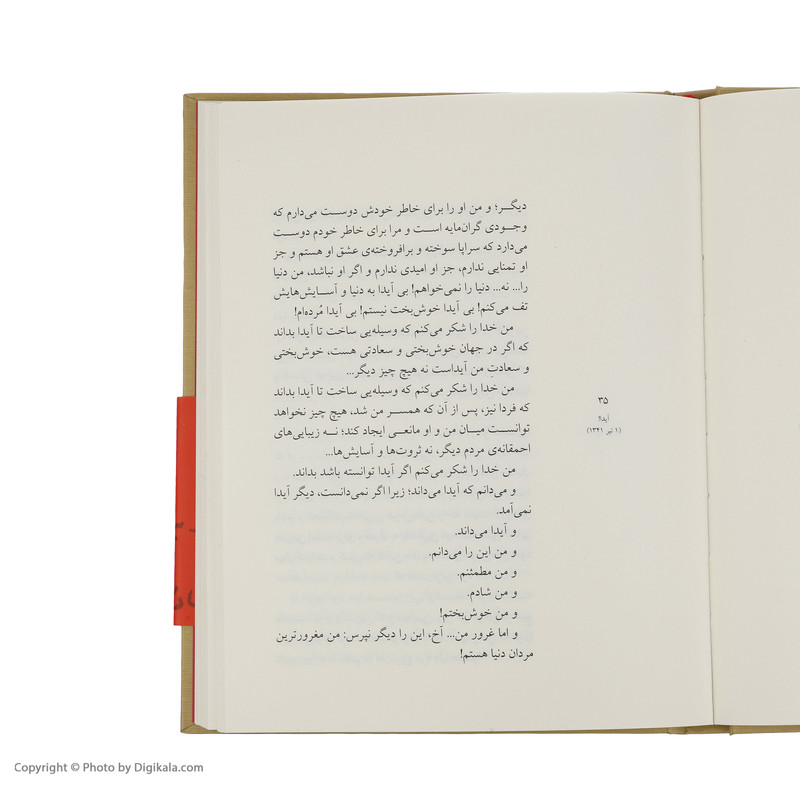 دیگر؛ و من او را برای خاطر خودش دوست می‌دارم که
وجودی گران‌مایه است و مرا برای خاطر خودم دوست
می‌دارد که سراپا سوخته و برافروخته‌ی عشق او هستم و جز
او تمنایی ندارم، جز او امیدی ندارم و اگر او نباشد، من دنیا
را... نه... دنیا را نمی‌خواهم! بی آیدا به دنیا و آسایش‌هایش
تف می‌کنم! بی آیدا خوش‌بخت نیستم! بی آیدا مُرده‌ام!
من خدا را شکر می‌کنم که وسیله‌یی ساخت تا آیدا بداند
که اگر در جهان خوش‌بختی و سعادتی هست، خوش‌بختی
و سعادتِ من آیداست نه هیچ چیز دیگر...
من خدا را شکر می‌کنم که وسیله‌یی ساخت تا آیدا بداند
که فردا نیز، پس از آن که همسر من شد، هیچ چیز نخواهد
توانست میان من و او مانعی ایجاد کند؛ نه زیبایی‌های
احمقانه‌ی مردم دیگر، نه ثروت‌ها و آسایش‌ها...
من خدا را شکر می‌کنم اگر آیدا توانسته باشد بداند.
و می‌دانم که آیدا می‌داند؛ زیرا اگر نمی‌دانست، دیگر آیدا
نمی‌آمد.
و آیدا می‌داند.
و من این را می‌دانم.
و من مطمئنم.
و من شادم.
و من خوش‌بختم!
و اما غرور من... آخ، این را دیگر نپرس: من مغرورترین
مردان دنیا هستم!
۳۵
آیدا!
(۱ تیر ۱۳۴۱)
Copyright © Photo by Digikala.com